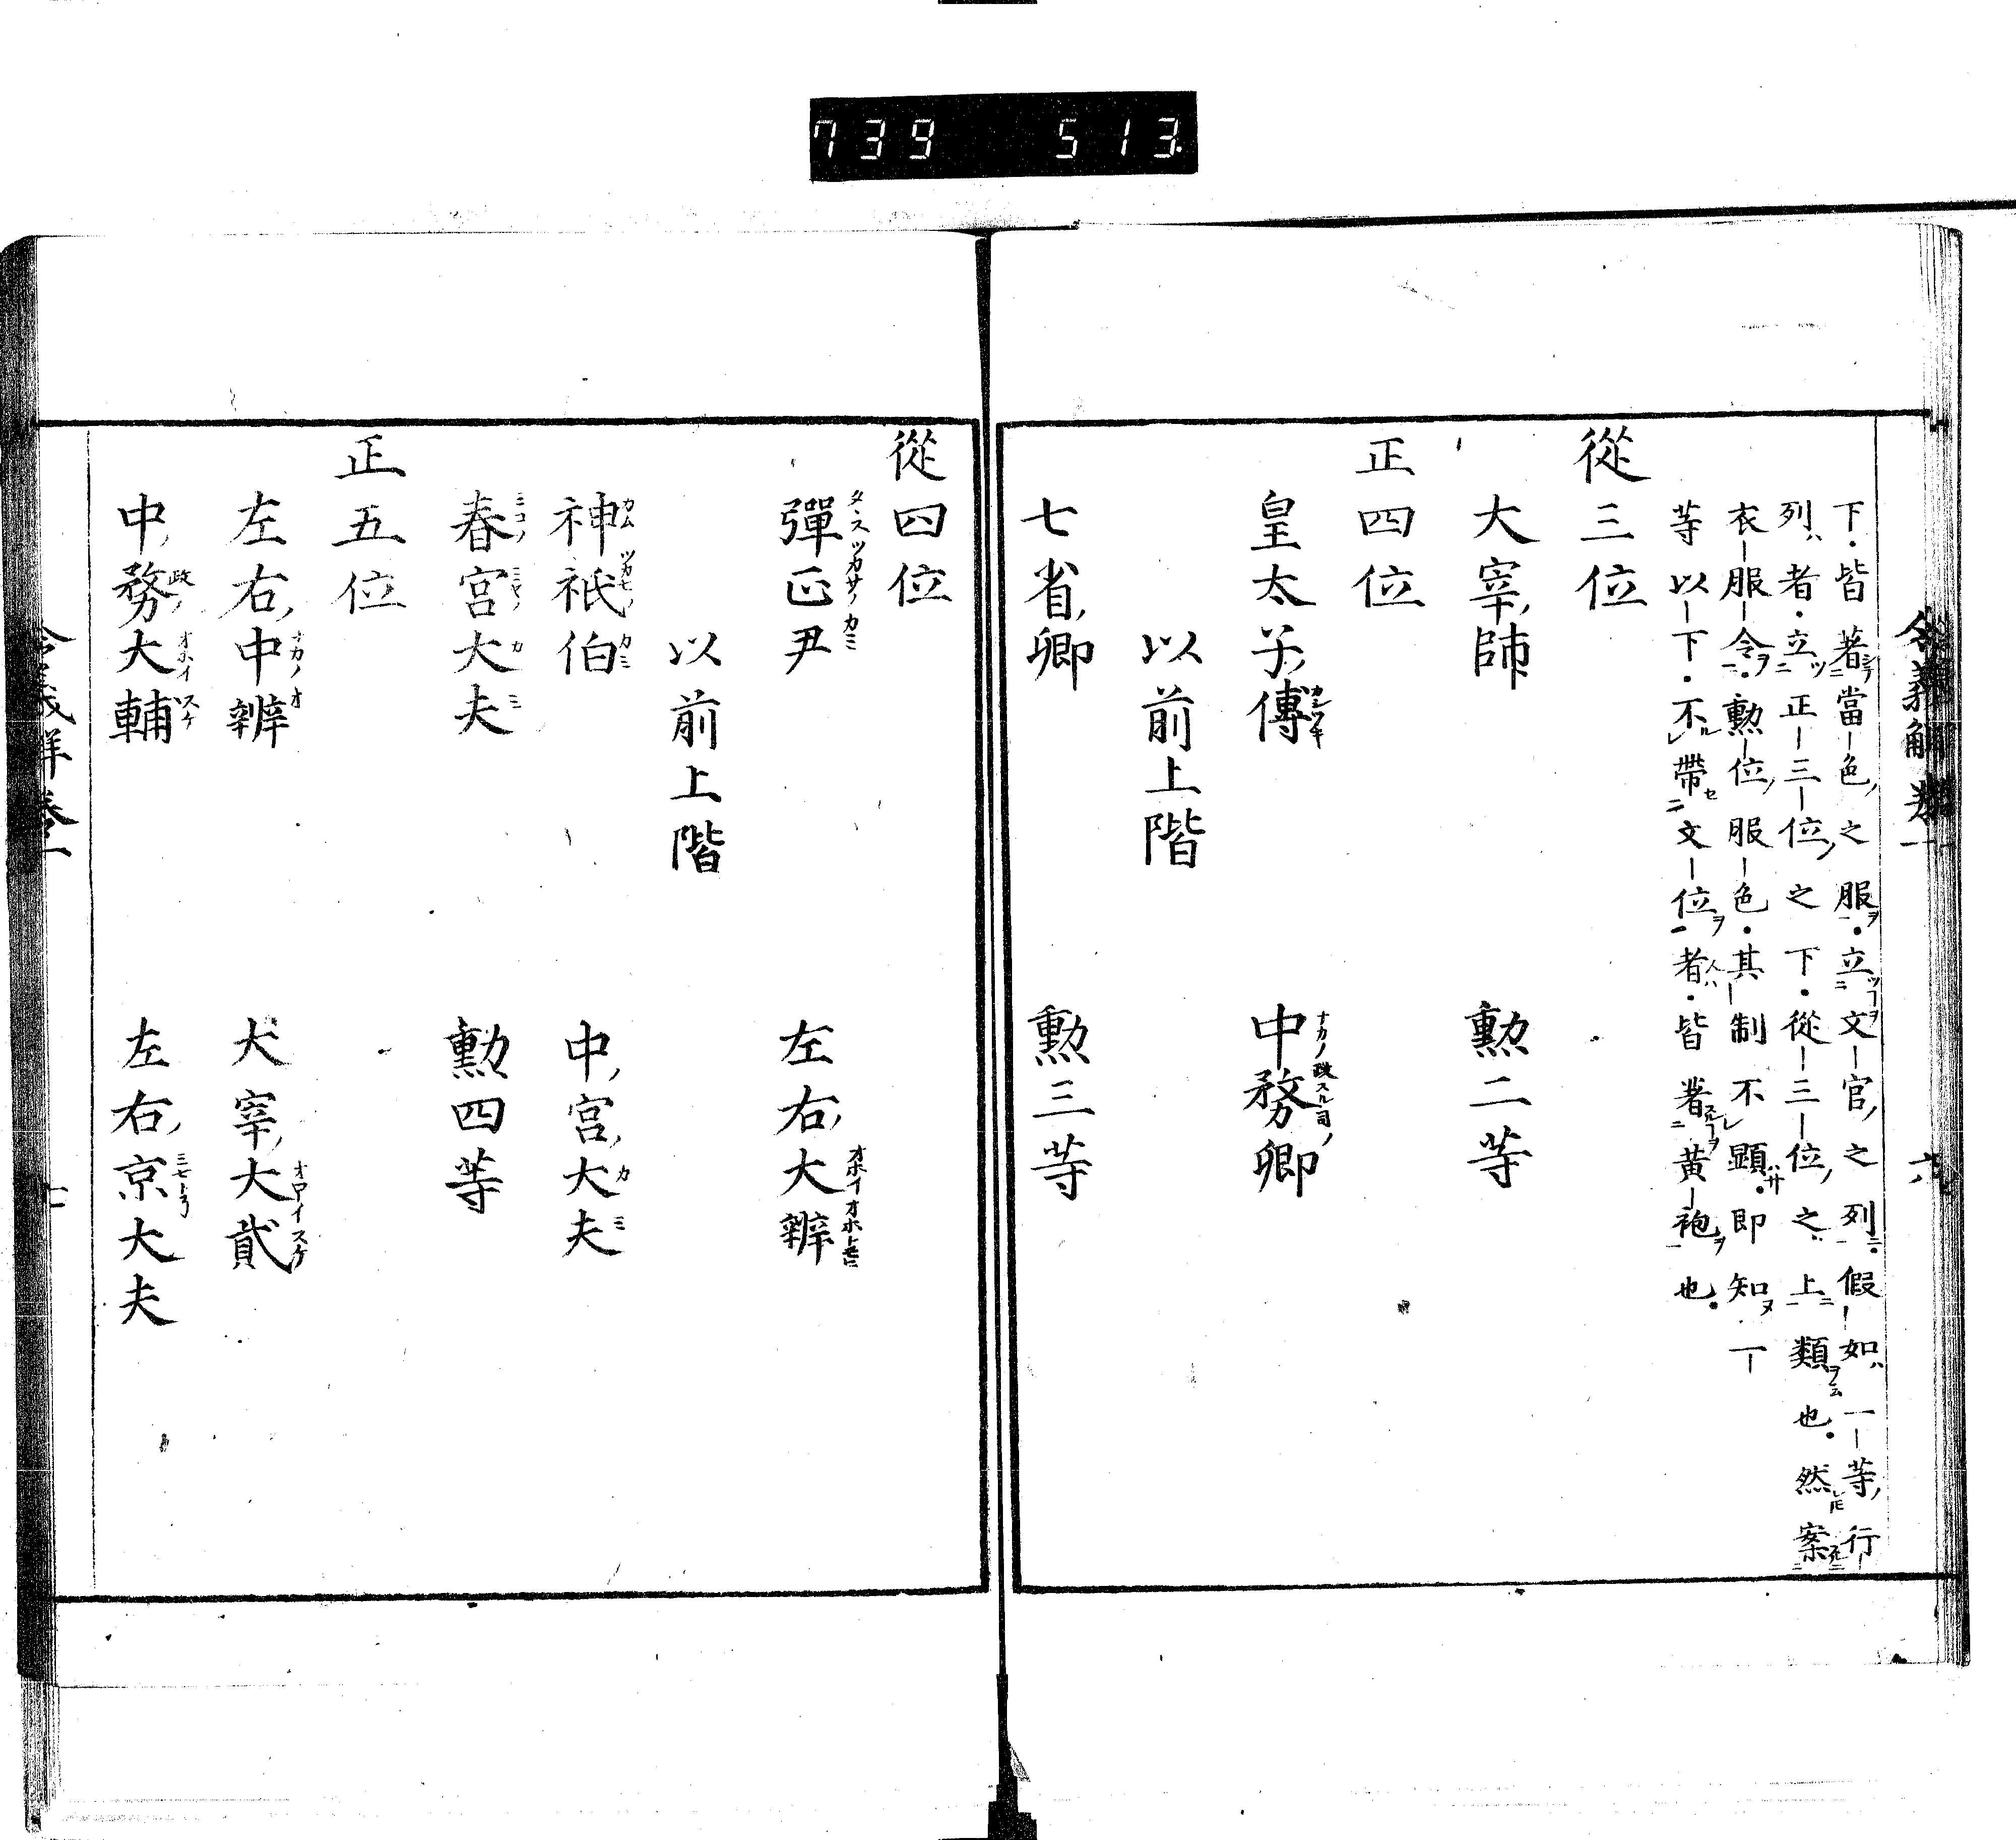 739 513
令義解卷一 六
下皆著當色之服立文官之列假如一等行
列者立正三位之下從三位之上類也然案
衣服令勳位服色其制不顯即知丁
等以下不帶文位者皆著黃袍也
從三位
大宰帥 勳二等
正四位
皇太子傅 中務卿
以前上階
七省卿 勳三等
從四位
彈正尹 左右大辨
以前上階
神祇伯 中宮大夫
春宮大夫 勳四等
正五位
左右中辨 大宰大貳
中務大輔 左右京大夫
令義解卷一 七